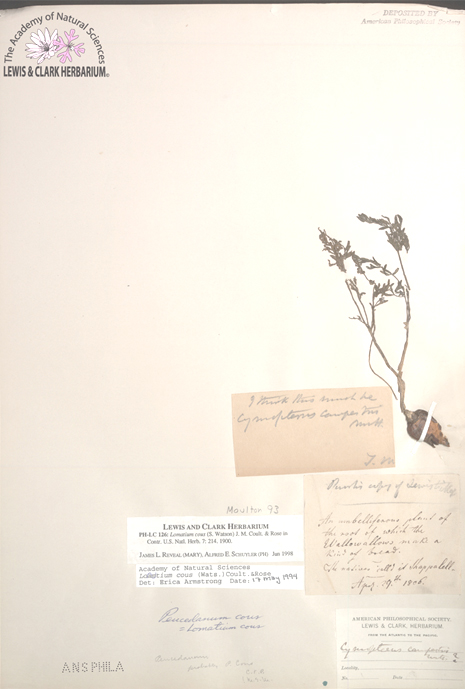 The Academy of Natural Sciences
LEWIS & CLARK HERBARIUM
DEPOSITED BY
American Philosophical Society
I think this must be
Cymopterus campestris
Nutt.
Moulton 93
LEWIS AND CLARK HERBARIUM
PH-LC 126: Lomatium cous (S. Watson) J. M. Coult. & Rose in
Contr. U.S. Natl. Herb. 7: 214. 1900.
JAMES L. REVEAL (MARY), ALFRED E. SCHUYLER (PH) Jan 1998
Academy of Natural Sciences
Lomatium cous (Wats.) Coult. & Rose
Det: Erica Armstrong Date: 17 May 1994
Pursh's copy of Lewis's
An umbelliferous plant of
the root of which the
Wallowallows make a
kind of bread.
The natives call it Shappalell.
Apr. 29th 1806.
Peucedanum cous
= Lomatium cous
AMERICAN PHILOSOPHICAL SOCIETY.
LEWIS & CLARK, HERBARIUM.
FROM THE ATLANTIC TO THE PACIFIC.
Cymopterus campestris ?
Nutt.
Locality,
No. Date
Peucedanum
ANSPHILA